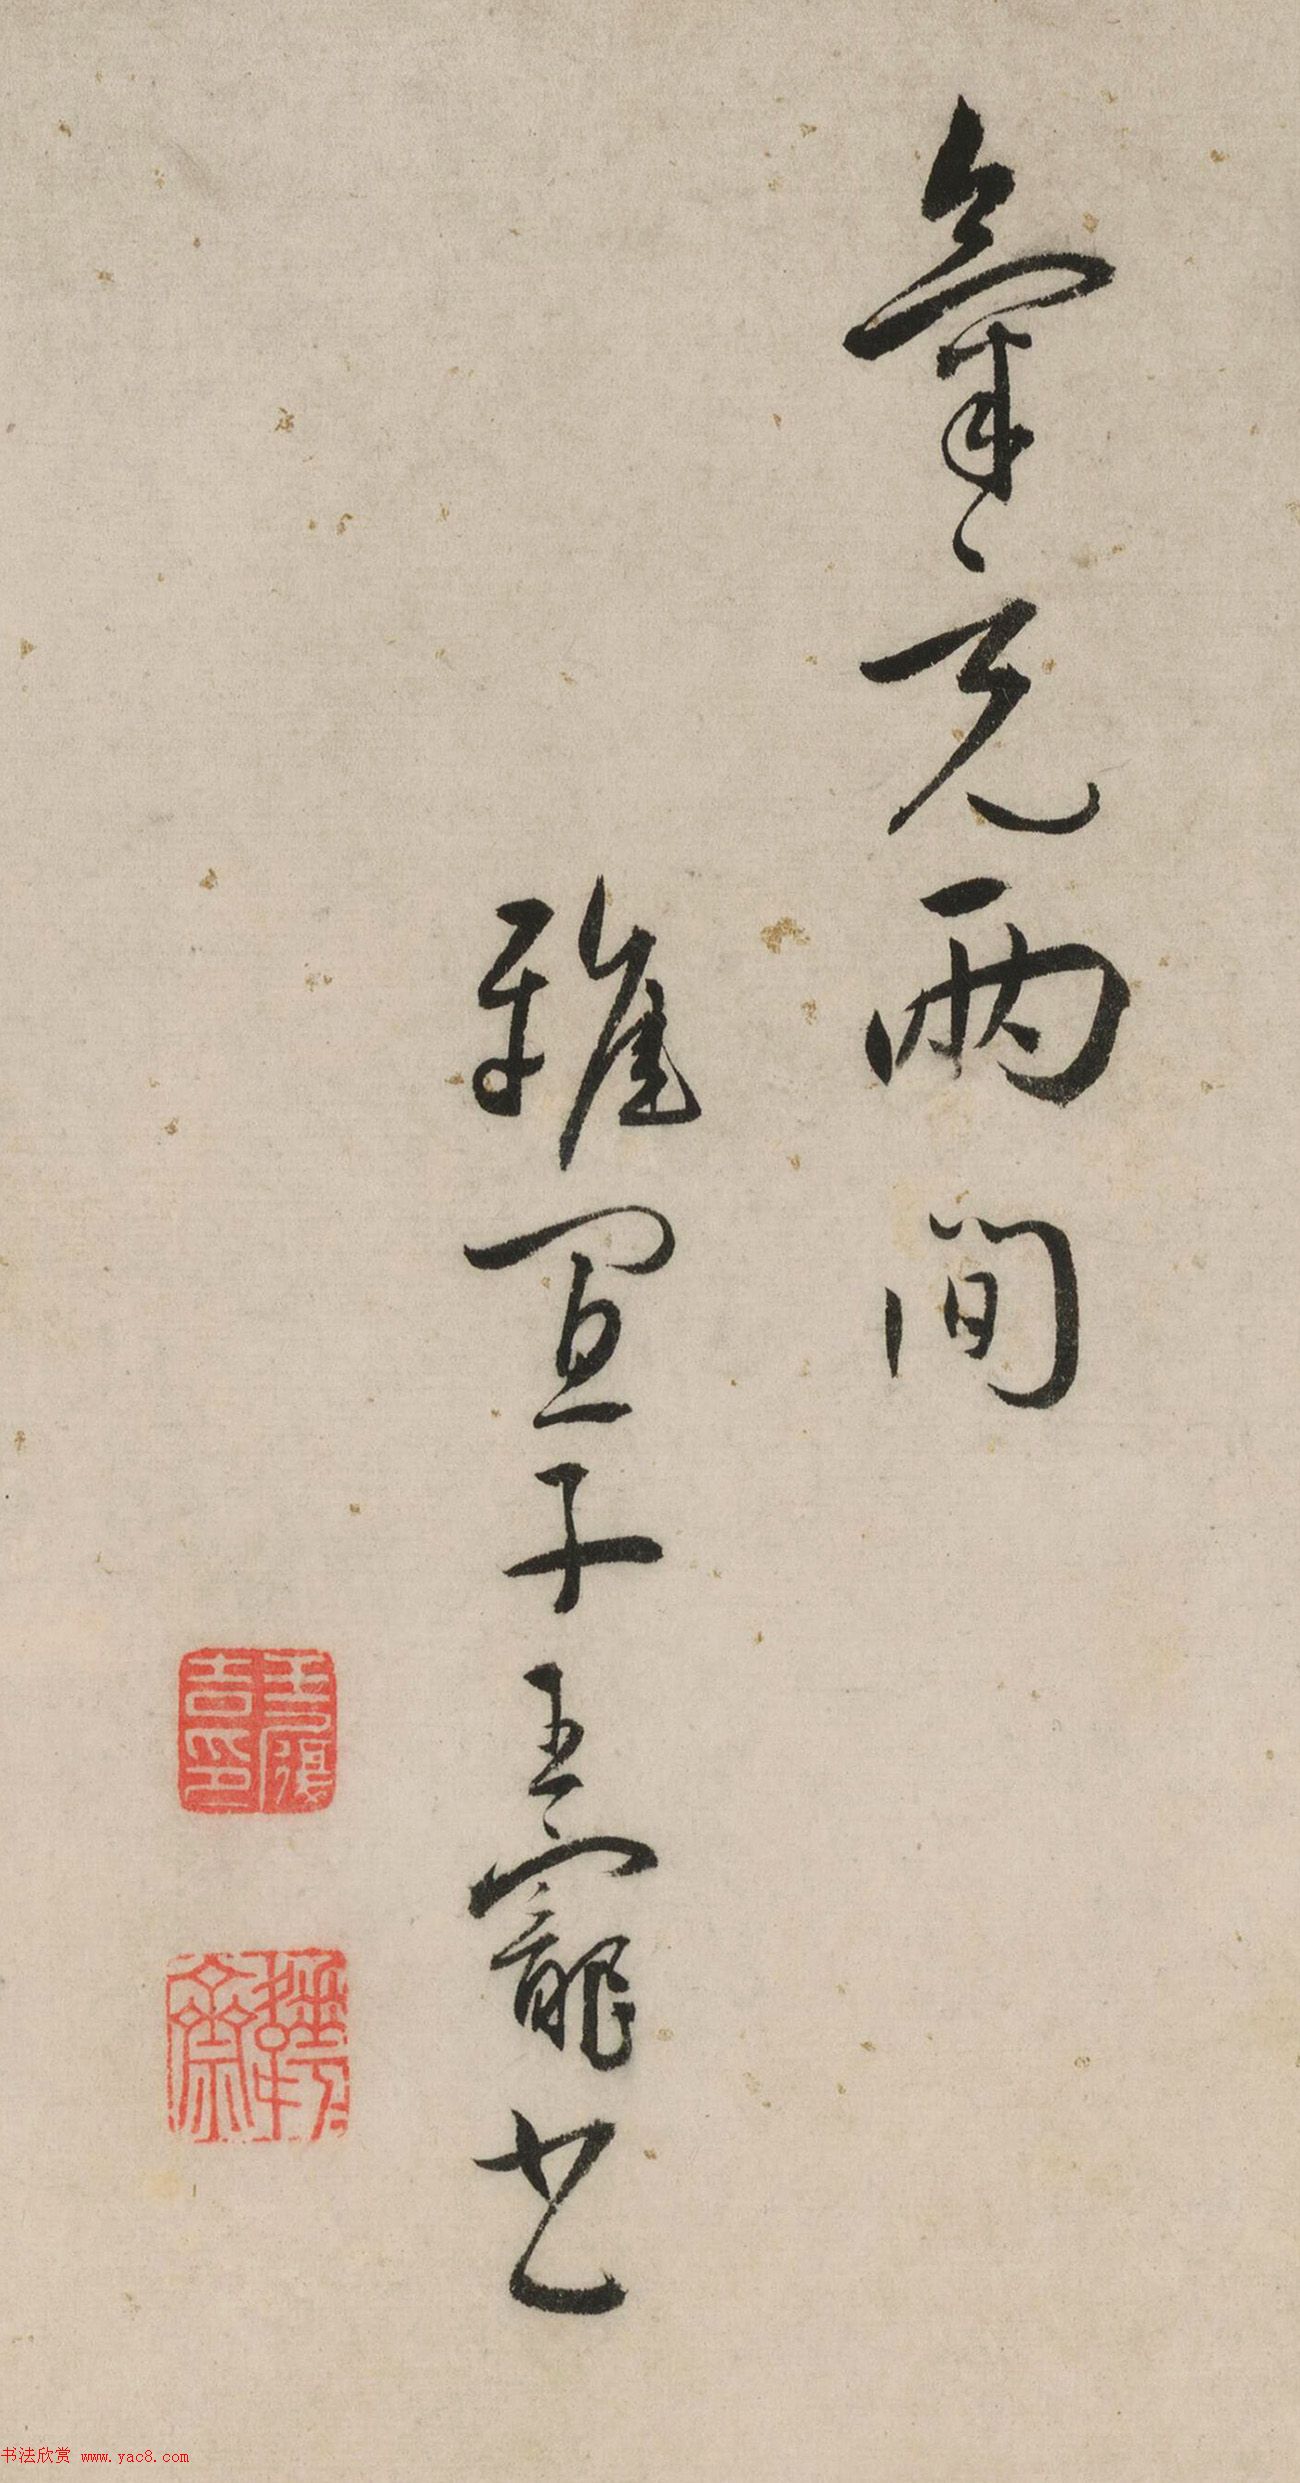 氣元兩間
雅宜子王寵書
王履吉印
韡韡齋
书法欣赏 www.yac8.com